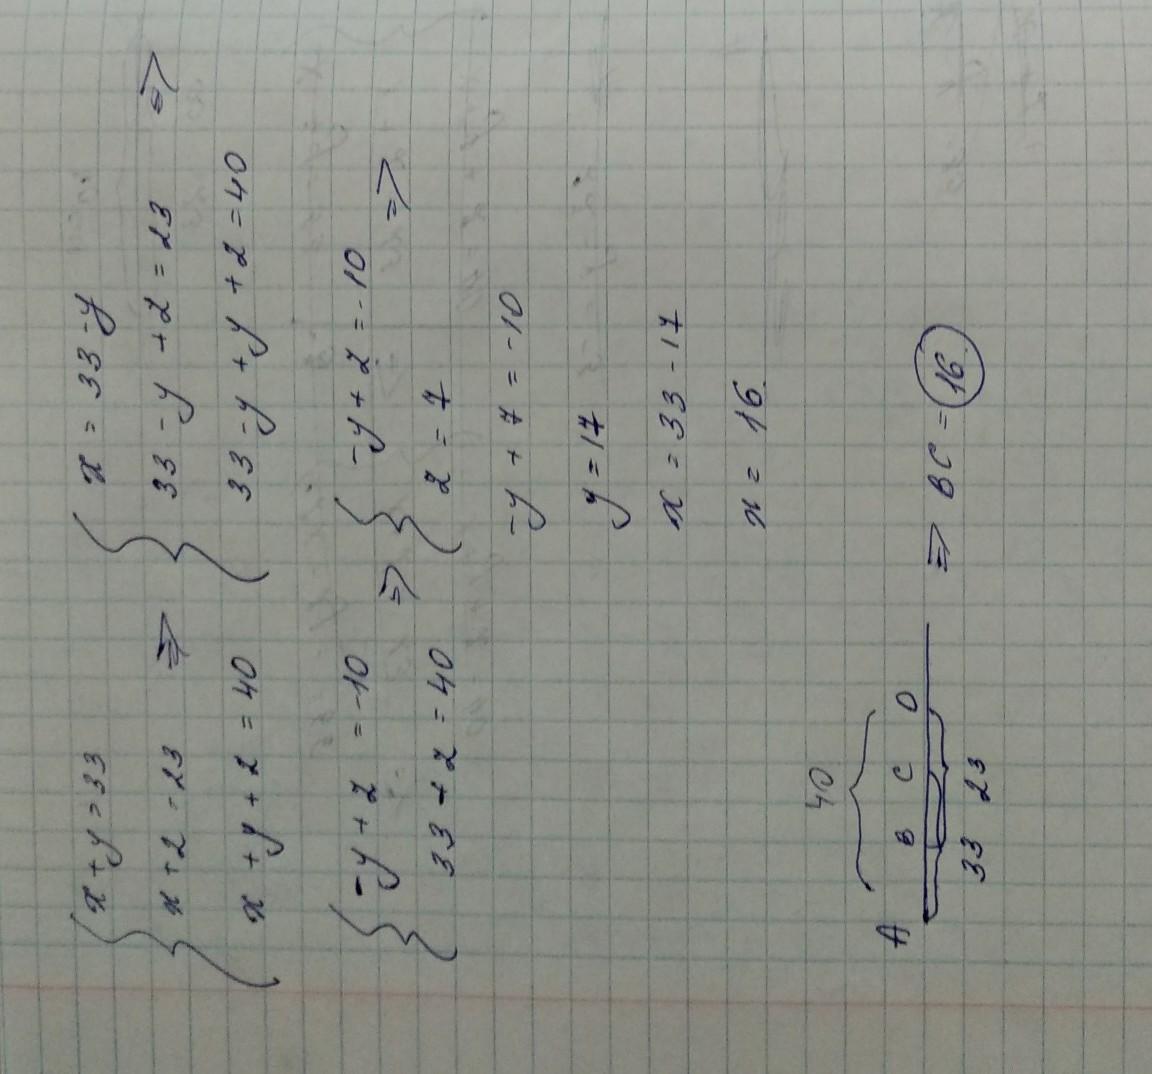 x + y = 33
x + z = 23 ⇒
x + y + z = 40
x = 33 - y
33 - y + z = 23 ⇒
33 - y + y + z = 40
-y + z = -10 ⇒
33 + z = 40
-y + z = -10 ⇒
z = 7
-y + 7 = -10
y = 17
x = 33 - 17
x = 16.
40
A B C D
33 23
⇒ BC = 16.